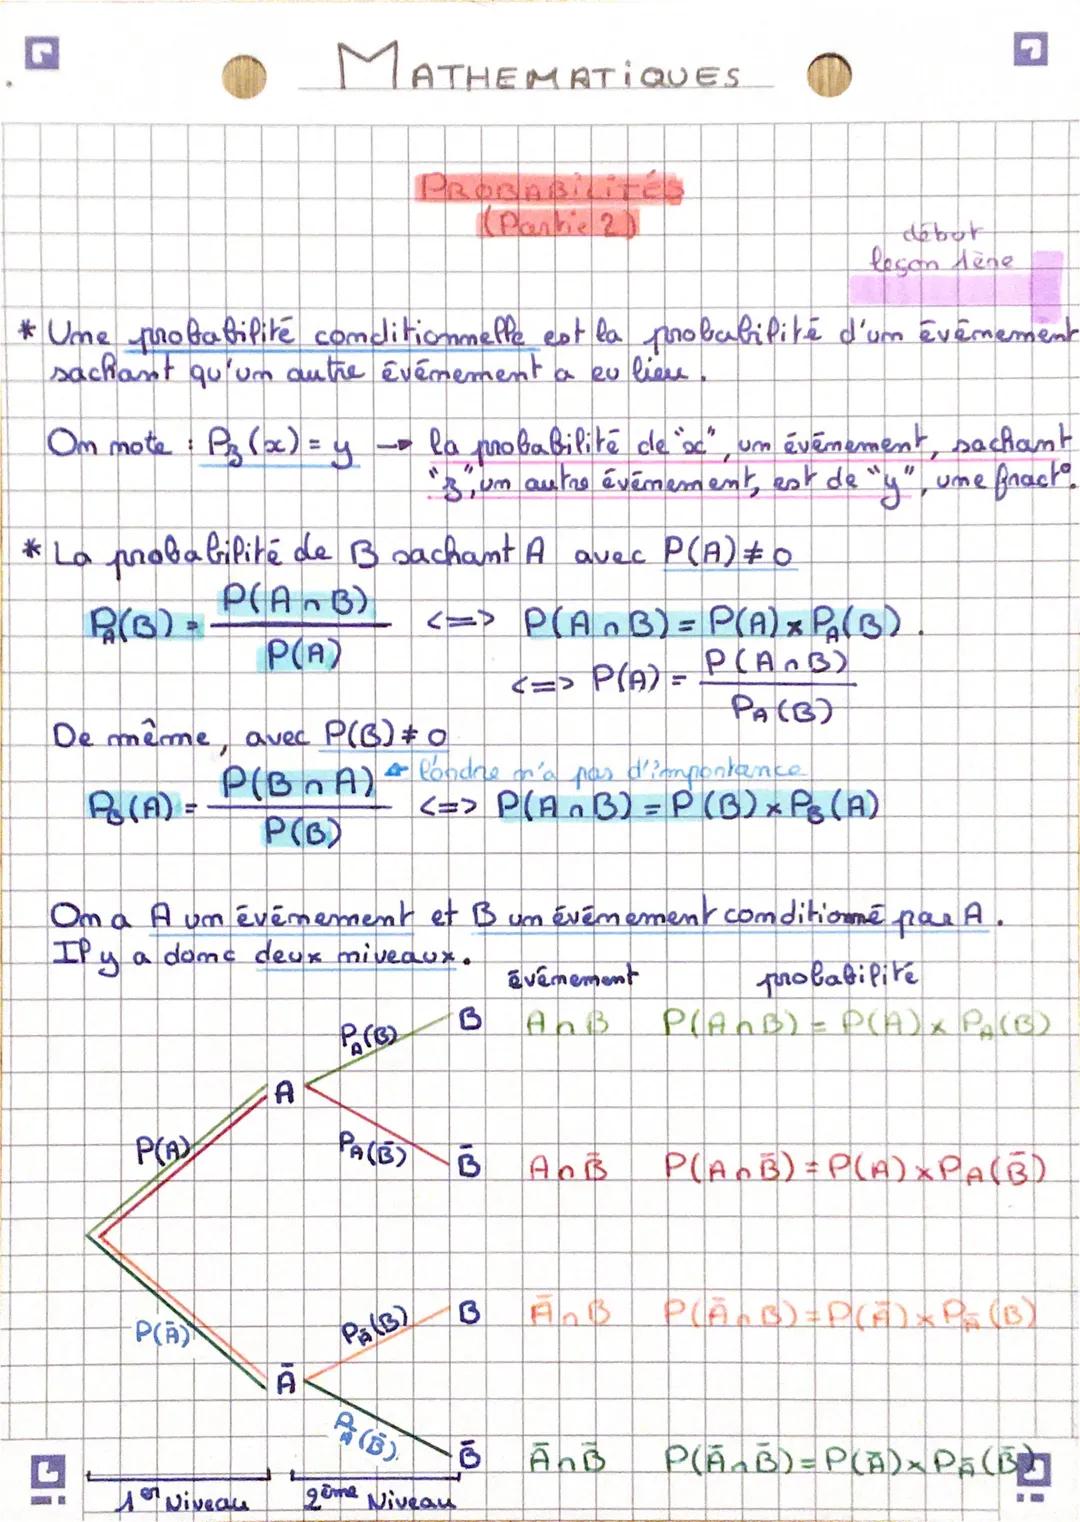 MATHEMATIQUES
PROBABILITÉS
(Partie 2)
début
leçon 1ère
* Une probabilité conditionnelle est la probabilité d'un événement
sachant qu'un autre événement a eu lieu.
On note : P₃(x) = y → la probabilité de "x", un événement, sachant
"z", un autre événement, est de "y", une fract°.
* La probabilité de B sachant A avec P(A) ≠ 0
P_A(B) = P(A∩B) / P(A) <=> P(A∩B) = P(A) × P_A(B).
<=> P(A) = P(A∩B) / P_A(B)
De même, avec P(B) ≠ 0
l'ordre n'a pas d'importance
P_B(A) = P(B∩A) / P(B) <=> P(A∩B) = P(B) × P_B(A)
On a A un événement et B un événement conditionné par A.
Il y a donc deux niveaux.
événement probabilité
P_A(B) B A∩B P(A∩B) = P(A) × P_A(B)
A
P(A) P_A(B̄) B̄ A∩B̄ P(A∩B̄) = P(A) × P_A(B̄)
P(Ā) P_Ā(B) B Ā∩B P(Ā∩B) = P(Ā) × P_Ā(B)
Ā
P_Ā(B̄) B̄ Ā∩B̄ P(Ā∩B̄) = P(Ā) × P_Ā(B̄)
1er Niveau 2ème Niveau